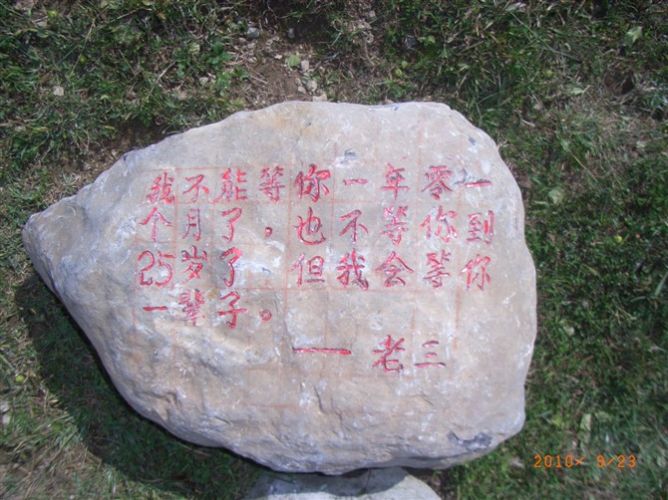 我不能等你一年零一
个月了，也不等你到
25岁了 但我会等你
一辈子。
—— 老三
2010/ 9/23